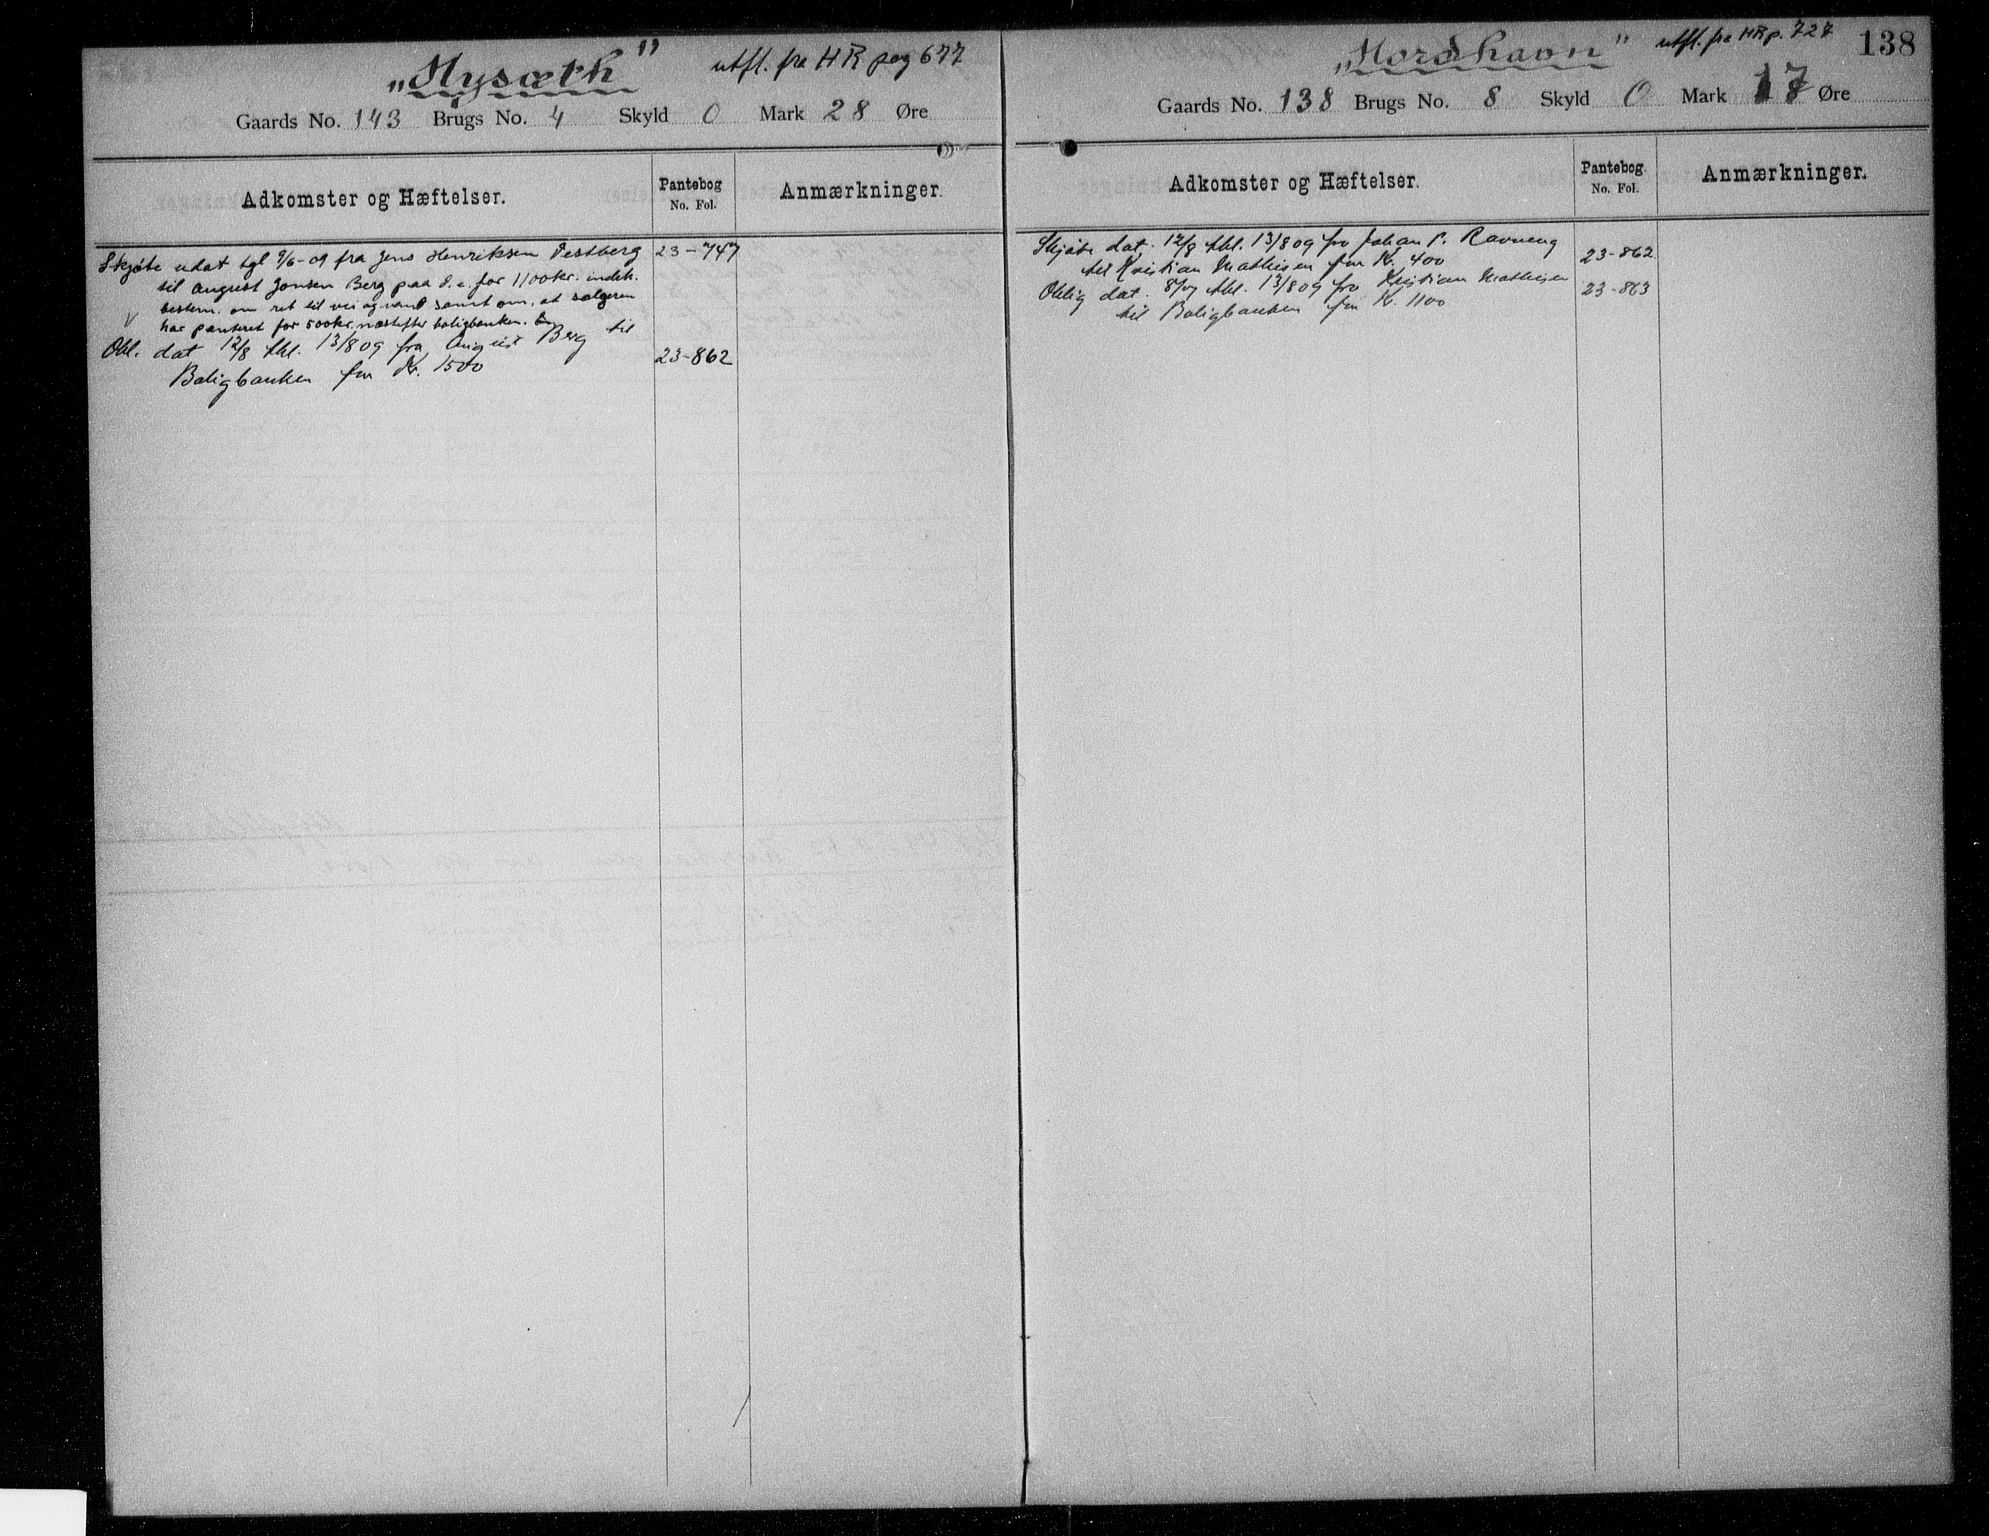 „Nysæth" utfl. fra HR pag 677
Gaards No. 143 Brugs No. 4 Skyld 0 Mark 28 Øre
Adkomster og Hæftelser. Pantebog No. Fol. Anmærkninger.
Skjøte udat tgl 9/6-09 fra Jens Henriksen Vestberg 23-747
til August Jonsen Berg paa d. e. for 1100 kr. indeh.
bestem. om ret til vei og vand samt om, at sælgeren
har panteret for 500 kr. næstefter boligbanken.
Obl. dat 12/8 thl. 13/8 09 fra August Berg til
Boligbanken for Kr. 1500 23-862
„Nordhavn" utfl. fra HR p. 727 138
Gaards No. 138 Brugs No. 8 Skyld 0 Mark 17 Øre
Adkomster og Hæftelser. Pantebog No. Fol. Anmærkninger.
Skjøte dat. 12/8 thl. 13/8 09 fra Johan P. Ravneng
til Kristian Mathisen for Kr. 400 23-862
Oblig dat. thl. 13/8 09 fra Kristian Mathisen 23-863
til Boligbanken for Kr. 1100